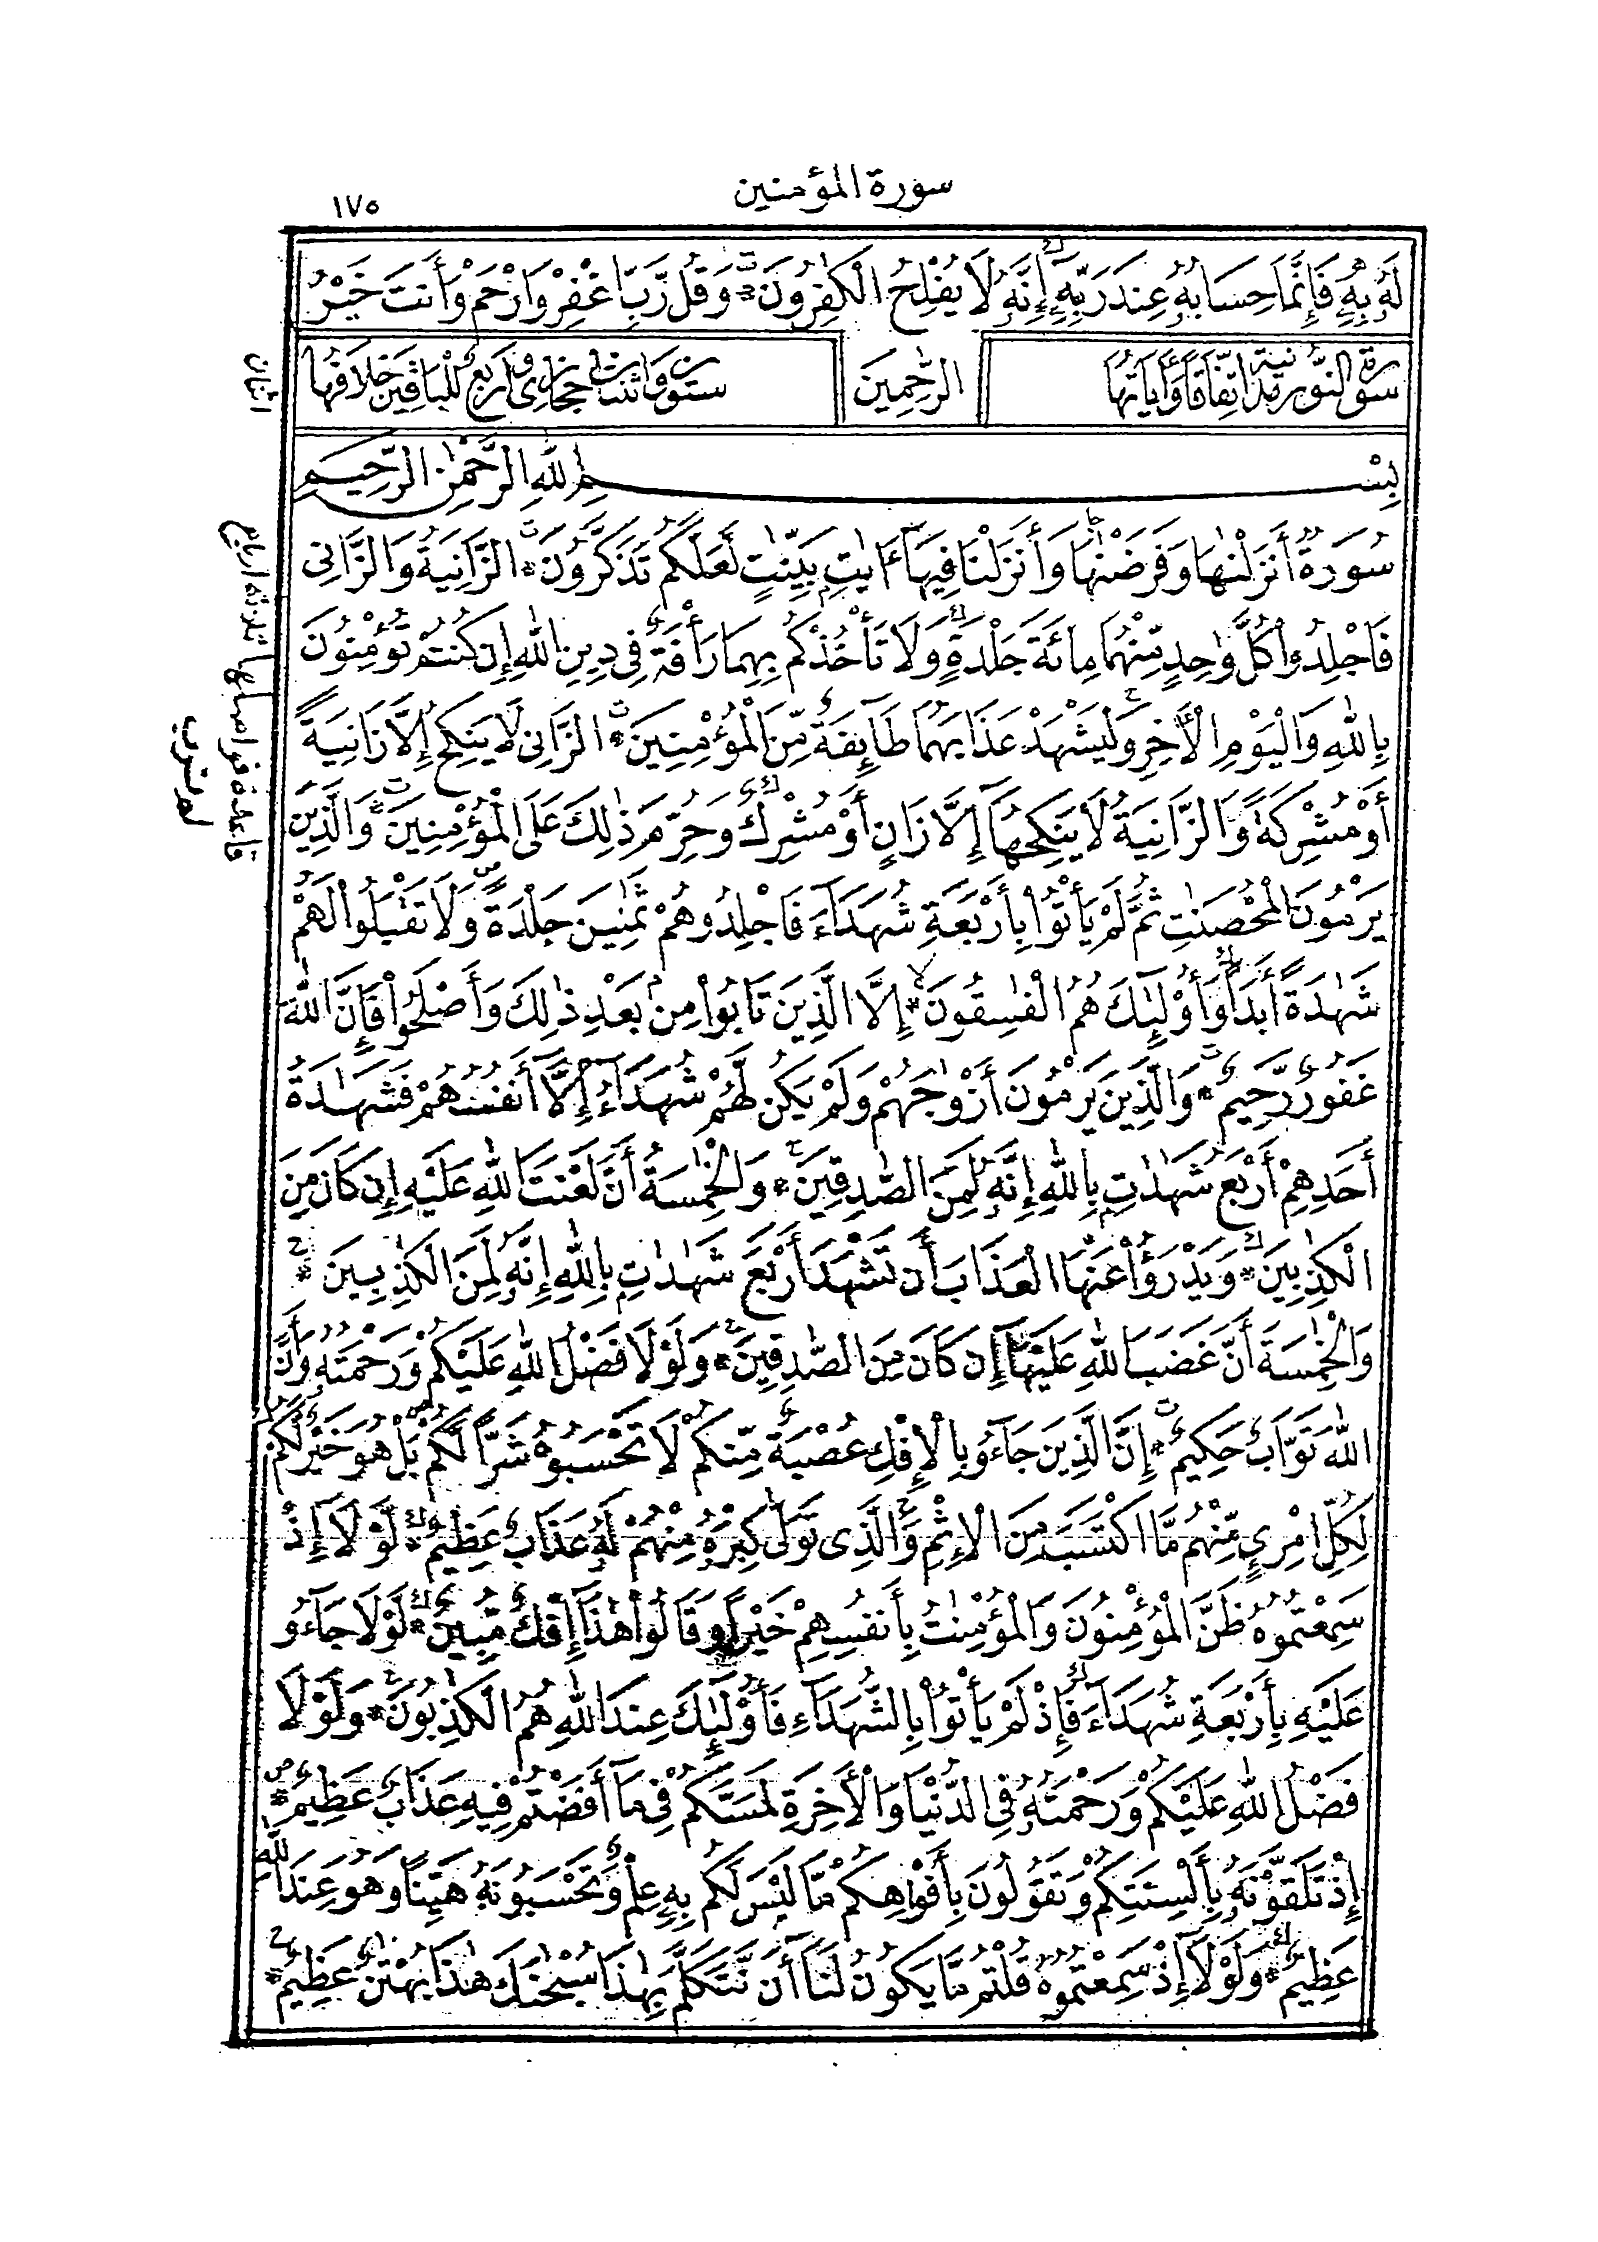 سورة المؤمنين
١٧٥
لَهُۥ بِهِۦ فَإِنَّمَا حِسَابُهُۥ عِندَ رَبِّهِۦٓ إِنَّهُۥ لَا يُفْلِحُ الْكَٰفِرُونَ * وَقُل رَّبِّ اغْفِرْ وَارْحَمْ وَأَنتَ خَيْرُ
سورة النور مدنية اتفاقا وآياتها
الرَّٰحِمِينَ
ستون واثنتان حجازى وأربع للباقين خلافها
اثنان
بِسْمِ اللَّهِ الرَّحْمَٰنِ الرَّحِيمِ
سُورَةٌ أَنزَلْنَٰهَا وَفَرَضْنَٰهَا وَأَنزَلْنَا فِيهَآ ءَايَٰتٍ بَيِّنَٰتٍ لَّعَلَّكُمْ تَذَكَّرُونَ * الزَّانِيَةُ وَالزَّانِى
فَاجْلِدُوا۟ كُلَّ وَٰحِدٍ مِّنْهُمَا مِا۟ئَةَ جَلْدَةٍ وَلَا تَأْخُذْكُم بِهِمَا رَأْفَةٌ فِى دِينِ اللَّهِ إِن كُنتُمْ تُؤْمِنُونَ
بِاللَّهِ وَالْيَوْمِ الْأَخِرِ وَلْيَشْهَدْ عَذَابَهُمَا طَآئِفَةٌ مِّنَ الْمُؤْمِنِينَ * الزَّانِى لَا يَنكِحُ إِلَّا زَانِيَةً
أَوْ مُشْرِكَةً وَالزَّانِيَةُ لَا يَنكِحُهَآ إِلَّا زَانٍ أَوْ مُشْرِكٌ وَحُرِّمَ ذَٰلِكَ عَلَى الْمُؤْمِنِينَ * وَالَّذِينَ
يَرْمُونَ الْمُحْصَنَٰتِ ثُمَّ لَمْ يَأْتُوا۟ بِأَرْبَعَةِ شُهَدَآءَ فَاجْلِدُوهُمْ ثَمَٰنِينَ جَلْدَةً وَلَا تَقْبَلُوا۟ لَهُمْ
شَهَٰدَةً أَبَدًا وَأُو۟لَٰٓئِكَ هُمُ الْفَٰسِقُونَ * إِلَّا الَّذِينَ تَابُوا۟ مِن بَعْدِ ذَٰلِكَ وَأَصْلَحُوا۟ فَإِنَّ اللَّهَ
غَفُورٌ رَّحِيمٌ * وَالَّذِينَ يَرْمُونَ أَزْوَٰجَهُمْ وَلَمْ يَكُن لَّهُمْ شُهَدَآءُ إِلَّآ أَنفُسُهُمْ فَشَهَٰدَةُ
أَحَدِهِمْ أَرْبَعُ شَهَٰدَٰتٍ بِاللَّهِ إِنَّهُۥ لَمِنَ الصَّٰدِقِينَ * وَالْخَٰمِسَةُ أَنَّ لَعْنَتَ اللَّهِ عَلَيْهِ إِن كَانَ مِنَ
الْكَٰذِبِينَ * وَيَدْرَؤُا۟ عَنْهَا الْعَذَابَ أَن تَشْهَدَ أَرْبَعَ شَهَٰدَٰتٍ بِاللَّهِ إِنَّهُۥ لَمِنَ الْكَٰذِبِينَ *
وَالْخَٰمِسَةَ أَنَّ غَضَبَ اللَّهِ عَلَيْهَآ إِن كَانَ مِنَ الصَّٰدِقِينَ * وَلَوْلَا فَضْلُ اللَّهِ عَلَيْكُمْ وَرَحْمَتُهُۥ وَأَنَّ
اللَّهَ تَوَّابٌ حَكِيمٌ * إِنَّ الَّذِينَ جَآءُو بِالْإِفْكِ عُصْبَةٌ مِّنكُمْ لَا تَحْسَبُوهُ شَرًّا لَّكُم بَلْ هُوَ خَيْرٌ لَّكُمْ
لِكُلِّ امْرِئٍ مِّنْهُم مَّا اكْتَسَبَ مِنَ الْإِثْمِ وَالَّذِى تَوَلَّىٰ كِبْرَهُۥ مِنْهُمْ لَهُۥ عَذَابٌ عَظِيمٌ * لَّوْلَآ إِذْ
سَمِعْتُمُوهُ ظَنَّ الْمُؤْمِنُونَ وَالْمُؤْمِنَٰتُ بِأَنفُسِهِمْ خَيْرًا وَقَالُوا۟ هَٰذَآ إِفْكٌ مُّبِينٌ * لَّوْلَا جَآءُو
عَلَيْهِ بِأَرْبَعَةِ شُهَدَآءَ فَإِذْ لَمْ يَأْتُوا۟ بِالشُّهَدَآءِ فَأُو۟لَٰٓئِكَ عِندَ اللَّهِ هُمُ الْكَٰذِبُونَ * وَلَوْلَا
فَضْلُ اللَّهِ عَلَيْكُمْ وَرَحْمَتُهُۥ فِى الدُّنْيَا وَالْأَخِرَةِ لَمَسَّكُمْ فِى مَآ أَفَضْتُمْ فِيهِ عَذَابٌ عَظِيمٌ *
إِذْ تَلَقَّوْنَهُۥ بِأَلْسِنَتِكُمْ وَتَقُولُونَ بِأَفْوَاهِكُم مَّا لَيْسَ لَكُم بِهِۦ عِلْمٌ وَتَحْسَبُونَهُۥ هَيِّنًا وَهُوَ عِندَ اللَّهِ
عَظِيمٌ * وَلَوْلَآ إِذْ سَمِعْتُمُوهُ قُلْتُم مَّا يَكُونُ لَنَآ أَن نَّتَكَلَّمَ بِهَٰذَا سُبْحَٰنَكَ هَٰذَا بُهْتَٰنٌ عَظِيمٌ *